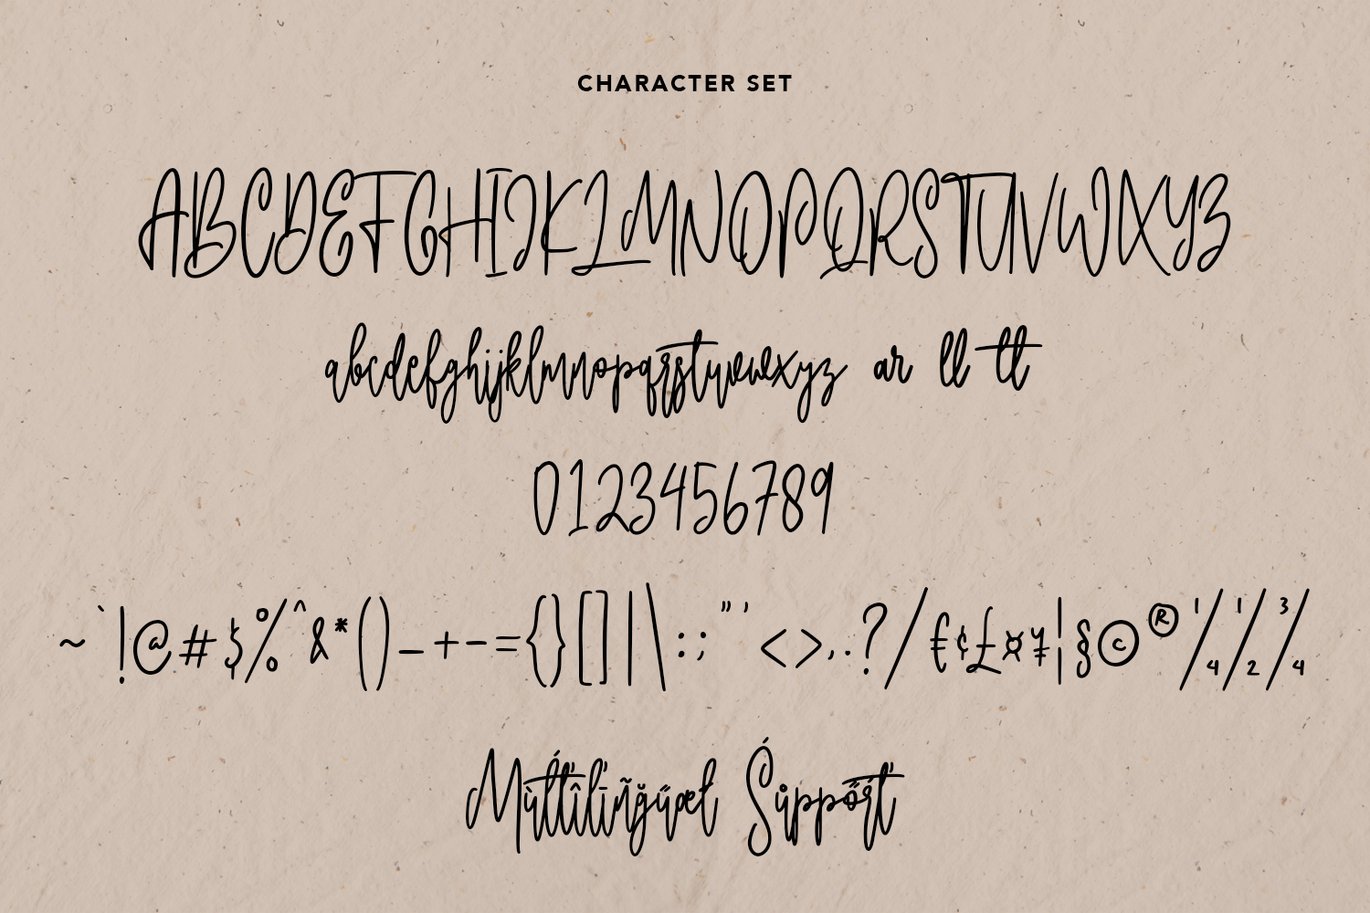 CHARACTER SET
ABCDEFGHIJKLMNOPQRSTUVWXYZ
abcdefghijklmnopqrstuvwxyz ar ll tt
0123456789
~`!@#$%^&*()_+-={}[]|\:;"'<>,.?/€¢£¤¥¦§©®¼½¾